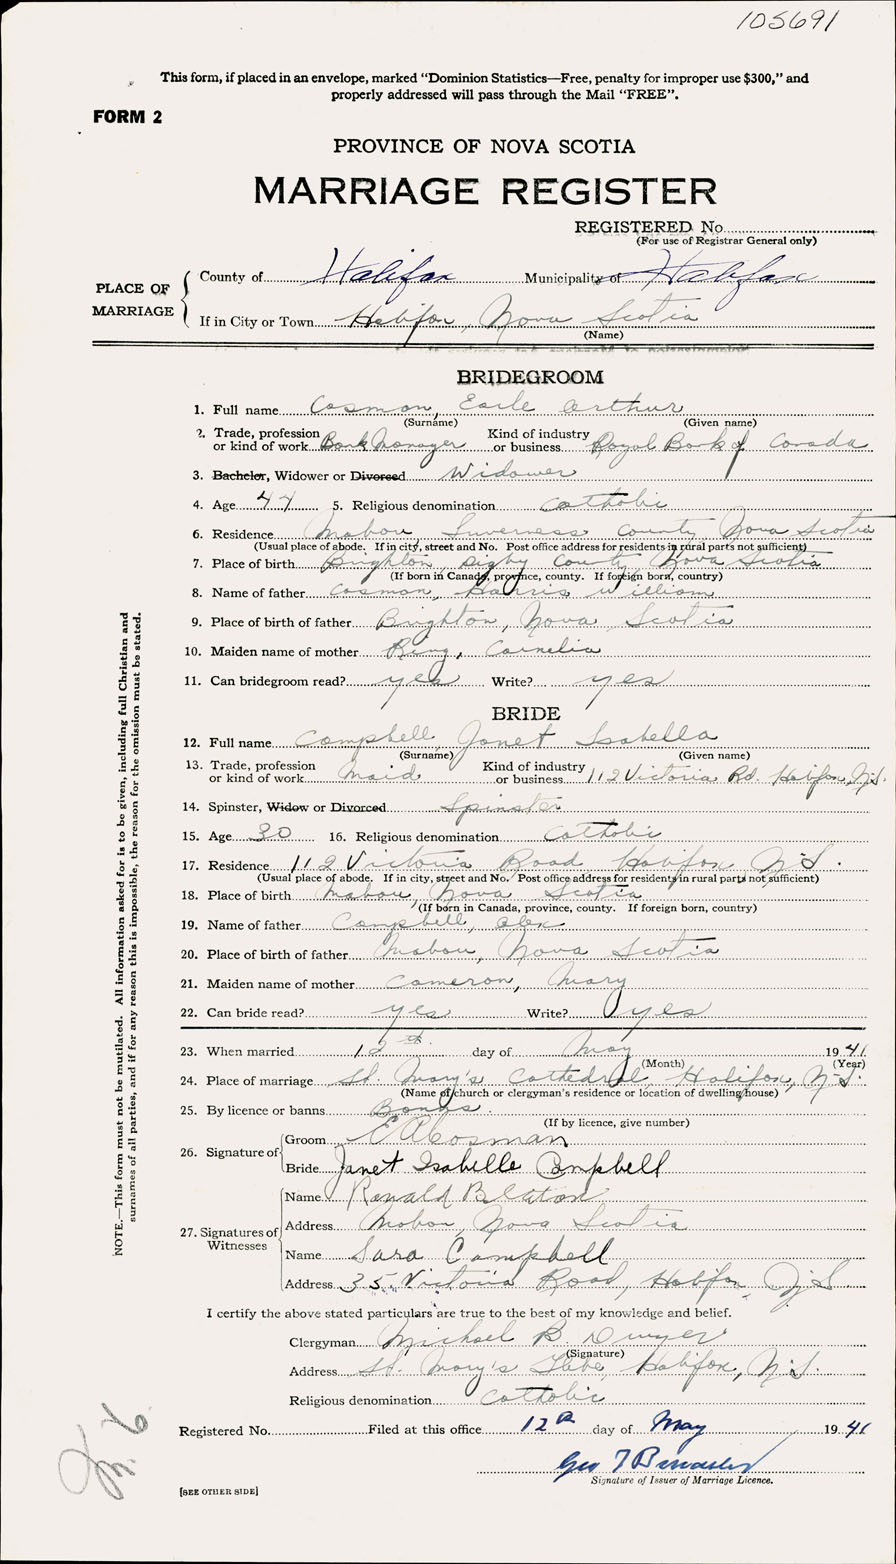 105691
This form, if placed in an envelope, marked “Dominion Statistics—Free, penalty for improper use $300,” and
properly addressed will pass through the Mail “FREE”.
FORM 2
PROVINCE OF NOVA SCOTIA
MARRIAGE REGISTER
REGISTERED No.
(For use of Registrar General only)
PLACE OF MARRIAGE
County of Halifax Municipality of Halifax
If in City or Town Halifax, Nova Scotia
(Name)
BRIDEGROOM
1. Full name Cosman, Earle Arthur
(Surname) (Given name)
2. Trade, profession or kind of work Bank Manager Kind of industry or business Royal Bank of Canada
3. Bachelor, Widower or Divorced Widower
4. Age 44 5. Religious denomination Catholic
6. Residence Mabou, Inverness County Nova Scotia
(Usual place of abode. If in city, street and No. Post office address for residents in rural parts not sufficient)
7. Place of birth Brighton, Digby County Nova Scotia
(If born in Canada, province, county. If foreign born, country)
8. Name of father Cosman, Harris William
9. Place of birth of father Brighton, Nova Scotia
10. Maiden name of mother Ring, Cornelia
11. Can bridegroom read? yes Write? yes
BRIDE
12. Full name Campbell, Janet Isabella
(Surname) (Given name)
13. Trade, profession or kind of work Maid Kind of industry or business 112 Victoria Rd. Halifax, N.S.
14. Spinster, Widow or Divorced Spinster
15. Age 30 16. Religious denomination Catholic
17. Residence 112 Victoria Road Halifax N.S.
(Usual place of abode. If in city, street and No. Post office address for residents in rural parts not sufficient)
18. Place of birth Mabou, Nova Scotia
(If born in Canada, province, county. If foreign born, country)
19. Name of father Campbell, Alex
20. Place of birth of father Mabou, Nova Scotia
21. Maiden name of mother Cameron, Mary
22. Can bride read? yes Write? yes
23. When married 12th day of May 1941
(Month) (Year)
24. Place of marriage St. Mary's Cathedral, Halifax, N.S.
(Name of church or clergyman's residence or location of dwelling house)
25. By licence or banns Banns.
(If by licence, give number)
26. Signature of
Groom E A Cosman
Bride Janet Isabelle Campbell
27. Signatures of Witnesses
Name Ronald Beaton
Address Mabou, Nova Scotia
Name Sara Campbell
Address 35 Victoria Road, Halifax, N.S.
I certify the above stated particulars are true to the best of my knowledge and belief.
Clergyman Michael B. Dwyer
(Signature)
Address St. Mary's Glebe, Halifax, N.S.
Religious denomination Catholic
Registered No. Filed at this office 12th day of May 1941
Geo T
Signature of Issuer of Marriage Licence.
[SEE OTHER SIDE]
NOTE.—This form must not be mutilated. All information asked for is to be given, including full Christian and
surnames of all parties, and if for any reason this is impossible, the reason for the omission must be stated.